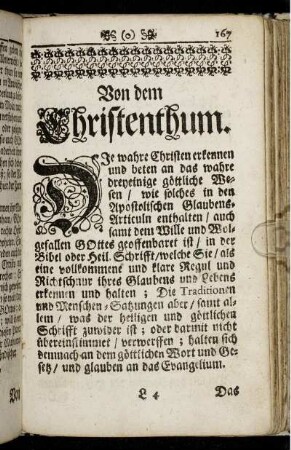 (o)
167
Von dem
Christenthum.
DJe wahre Christen erkennen
und beten an das wahre
dreyeinige göttliche We-
sen / wie solches in den
Apostolischen Glaubens-
Articuln enthalten / auch
samt dem Wille und Wol-
gefallen GOttes geoffenbaret ist / in der
Bibel oder Heil. Schrifft / welche Sie / als
eine vollkommene und klare Regul und
Richtschnur ihres Glaubens und Lebens
erkennen und halten ; Die Traditionen
und Menschen-Satzungen aber / samt al-
lem / was der heiligen und göttlichen
Schrifft zuwider ist ; oder darmit nicht
übereinstimmet / verwerffen ; halten sich
demnach an dem göttlichen Wort und Ge-
setz / und glauben an das Evangelium.
L 4
Das